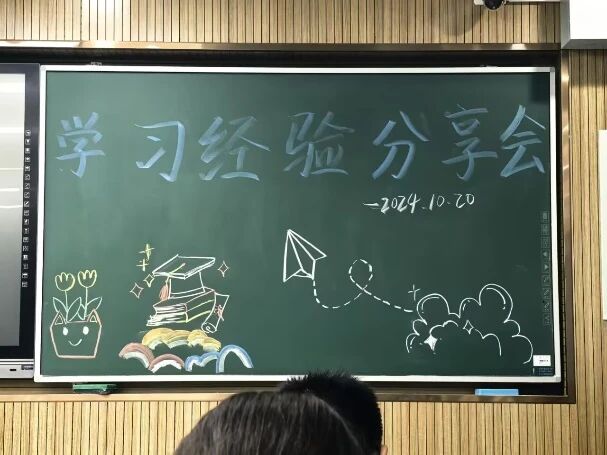 学习经验分享会
—2024.10.20